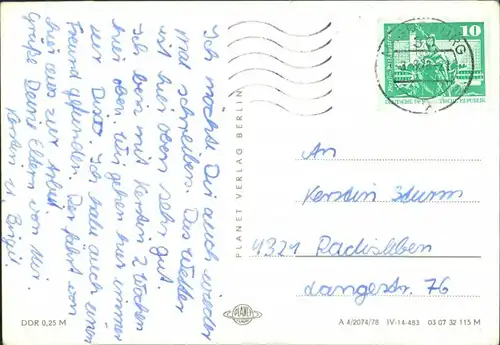 Ich möchte Dir auch wieder
mal schreiben. Das Wetter
ist hier oben sehr gut
Ich bin mit Kerstin 2 Wochen
hier oben. Wir gehen hier immer
zur Disko. Ich habe auch einen
Freund gefunden. Der fährt von
hier aus zur Arbeit.
Grüße Deine Eltern von mir.
Kerstin u. Birgit
PLANET VERLAG BERLIN
10
DEUTSCHE DEMOKRATISCHE REPUBLIK
An
Kerstin Sturm
4321 Radisleben
Langestr. 76
PLANET
DDR 0,25 M
A 4/2074/78 IV-14-483 03 07 32 115 M